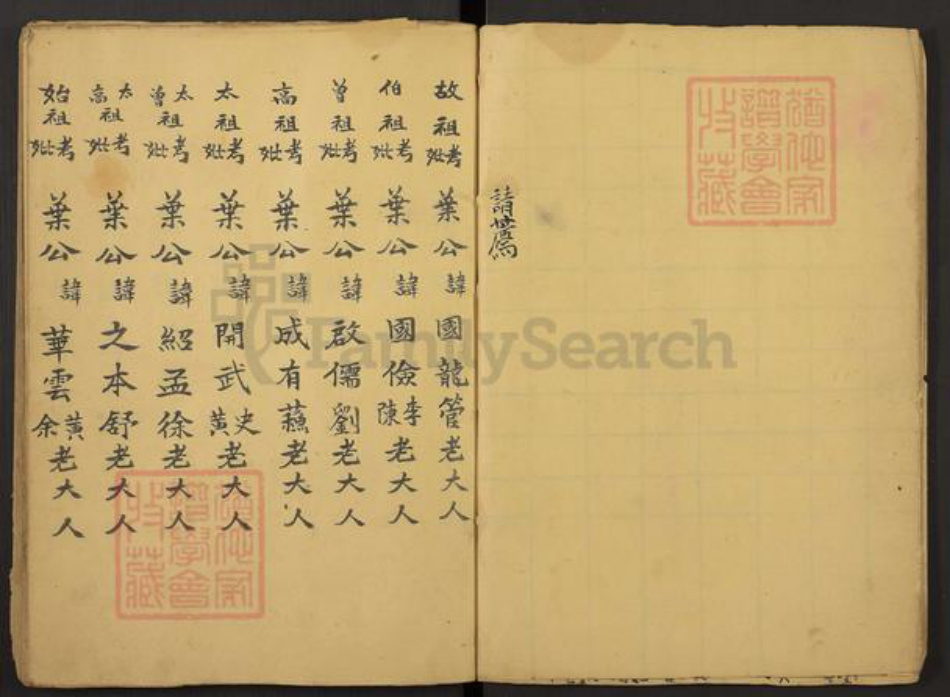 請舊
故祖考妣葉公諱國龍管老大人
伯祖考妣葉公諱國儉李陳老大人
曾祖考妣葉公諱啟儒劉老大人
高祖考妣葉公諱成有蘓老大人
太祖考妣葉公諱開武史黃老大人
太曾祖考妣葉公諱紹孟徐老大人
太高祖考妣葉公諱之本舒老大人
始祖考妣葉公諱華雲黃余老大人
譜學會
收藏
譜學會
收藏
FamilySearch